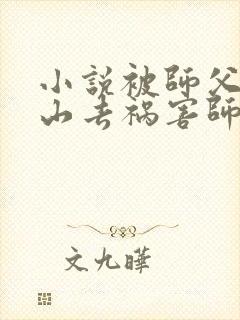 小説被師父
山去禍害師
文九曄